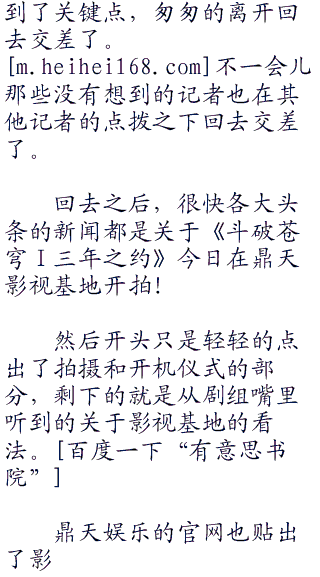 到了关键点，匆匆的离开回
去交差了。
[m.heihei168.com]不一会儿
那些没有想到的记者也在其
他记者的点拨之下回去交差
了。
回去之后，很快各大头
条的新闻都是关于《斗破苍
穹Ⅰ三年之约》今日在鼎天
影视基地开拍！
然后开头只是轻轻的点
出了拍摄和开机仪式的部
分，剩下的就是从剧组嘴里
听到的关于影视基地的看
法。[百度一下“有意思书
院”]
鼎天娱乐的官网也贴出
了影